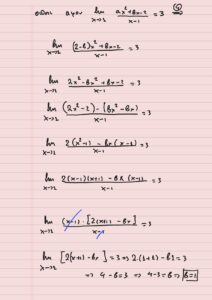 lim x→1 ax²+bx-2 / x-1 = 3
lim x→1 (2-b)x²+bx-2 / x-1 = 3
lim x→1 2x²-bx²+bx-2 / x-1 = 3
lim x→1 (2x²-2)-(bx²-bx) / x-1 = 3
lim x→1 2(x²-1)-bx(x-1) / x-1 = 3
lim x→1 2(x-1)(x+1)-bx(x-1) / x-1 = 3
lim x→1 (x-1)·[2(x+1)-bx] / x-1 = 3
lim x→1 [2(x+1)-bx]=3 ⇒ 2·(1+1)-b·1=3
⇒ 4-b=3 ⇒ 4-3=b ⇒ b=1